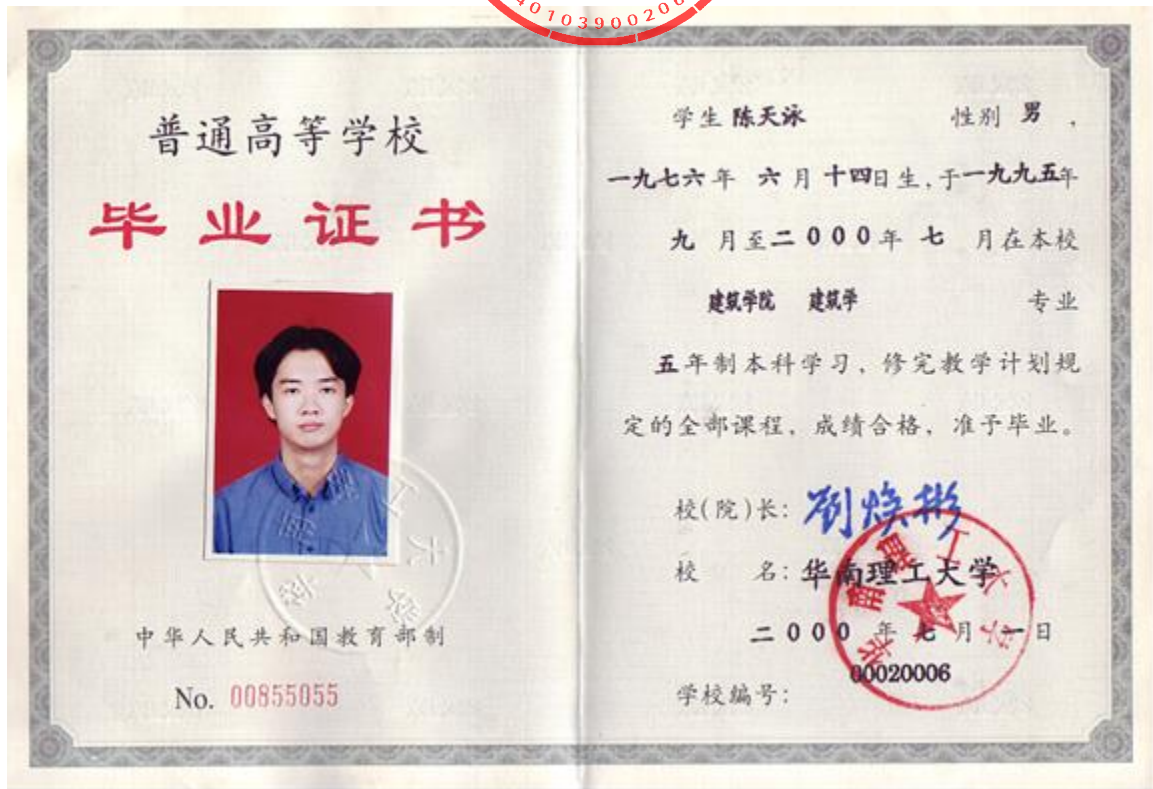 4010390020
普通高等学校
毕业证书
中华人民共和国教育部制
No. 00855055
学生 陈天泳 性别 男 ,
一九七六年 六 月 十四日生,于一九九五年
九 月至二000年 七 月在本校
建筑学院 建筑学 专业
五年制本科学习,修完教学计划规
定的全部课程,成绩合格,准予毕业。
校(院)长: 刘焕彬
校 名: 华南理工大学
二000 年 七 月 一 日
00020006
学校编号:
华南理工大学
华南理工大学